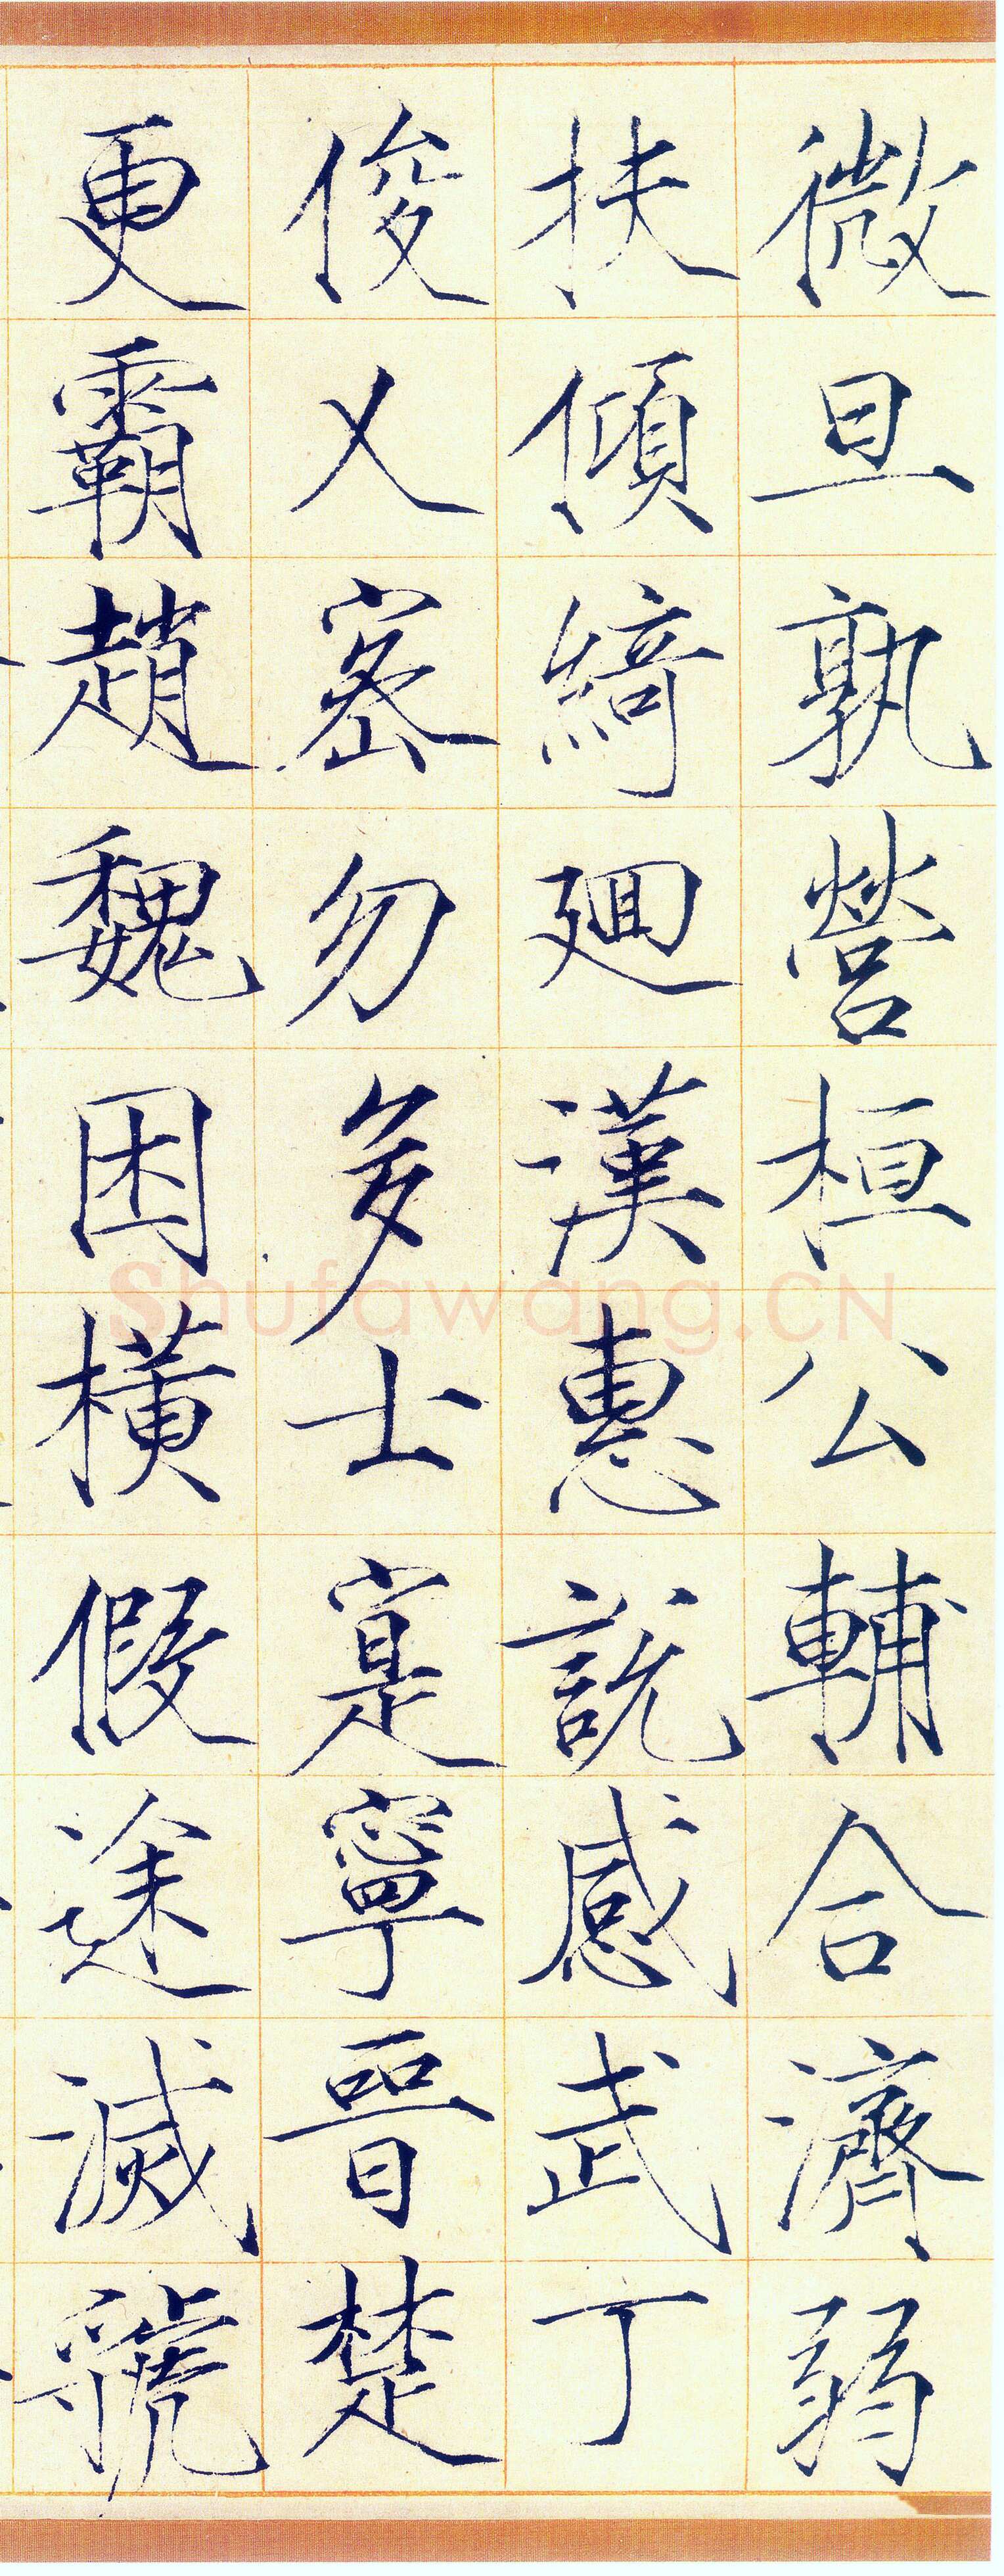 微旦孰營桓公輔合濟弱
扶傾綺廻漢惠說感武丁
俊乂密勿多士寔寧晉楚
更霸趙魏困橫假途滅虢
Shufawang.CN